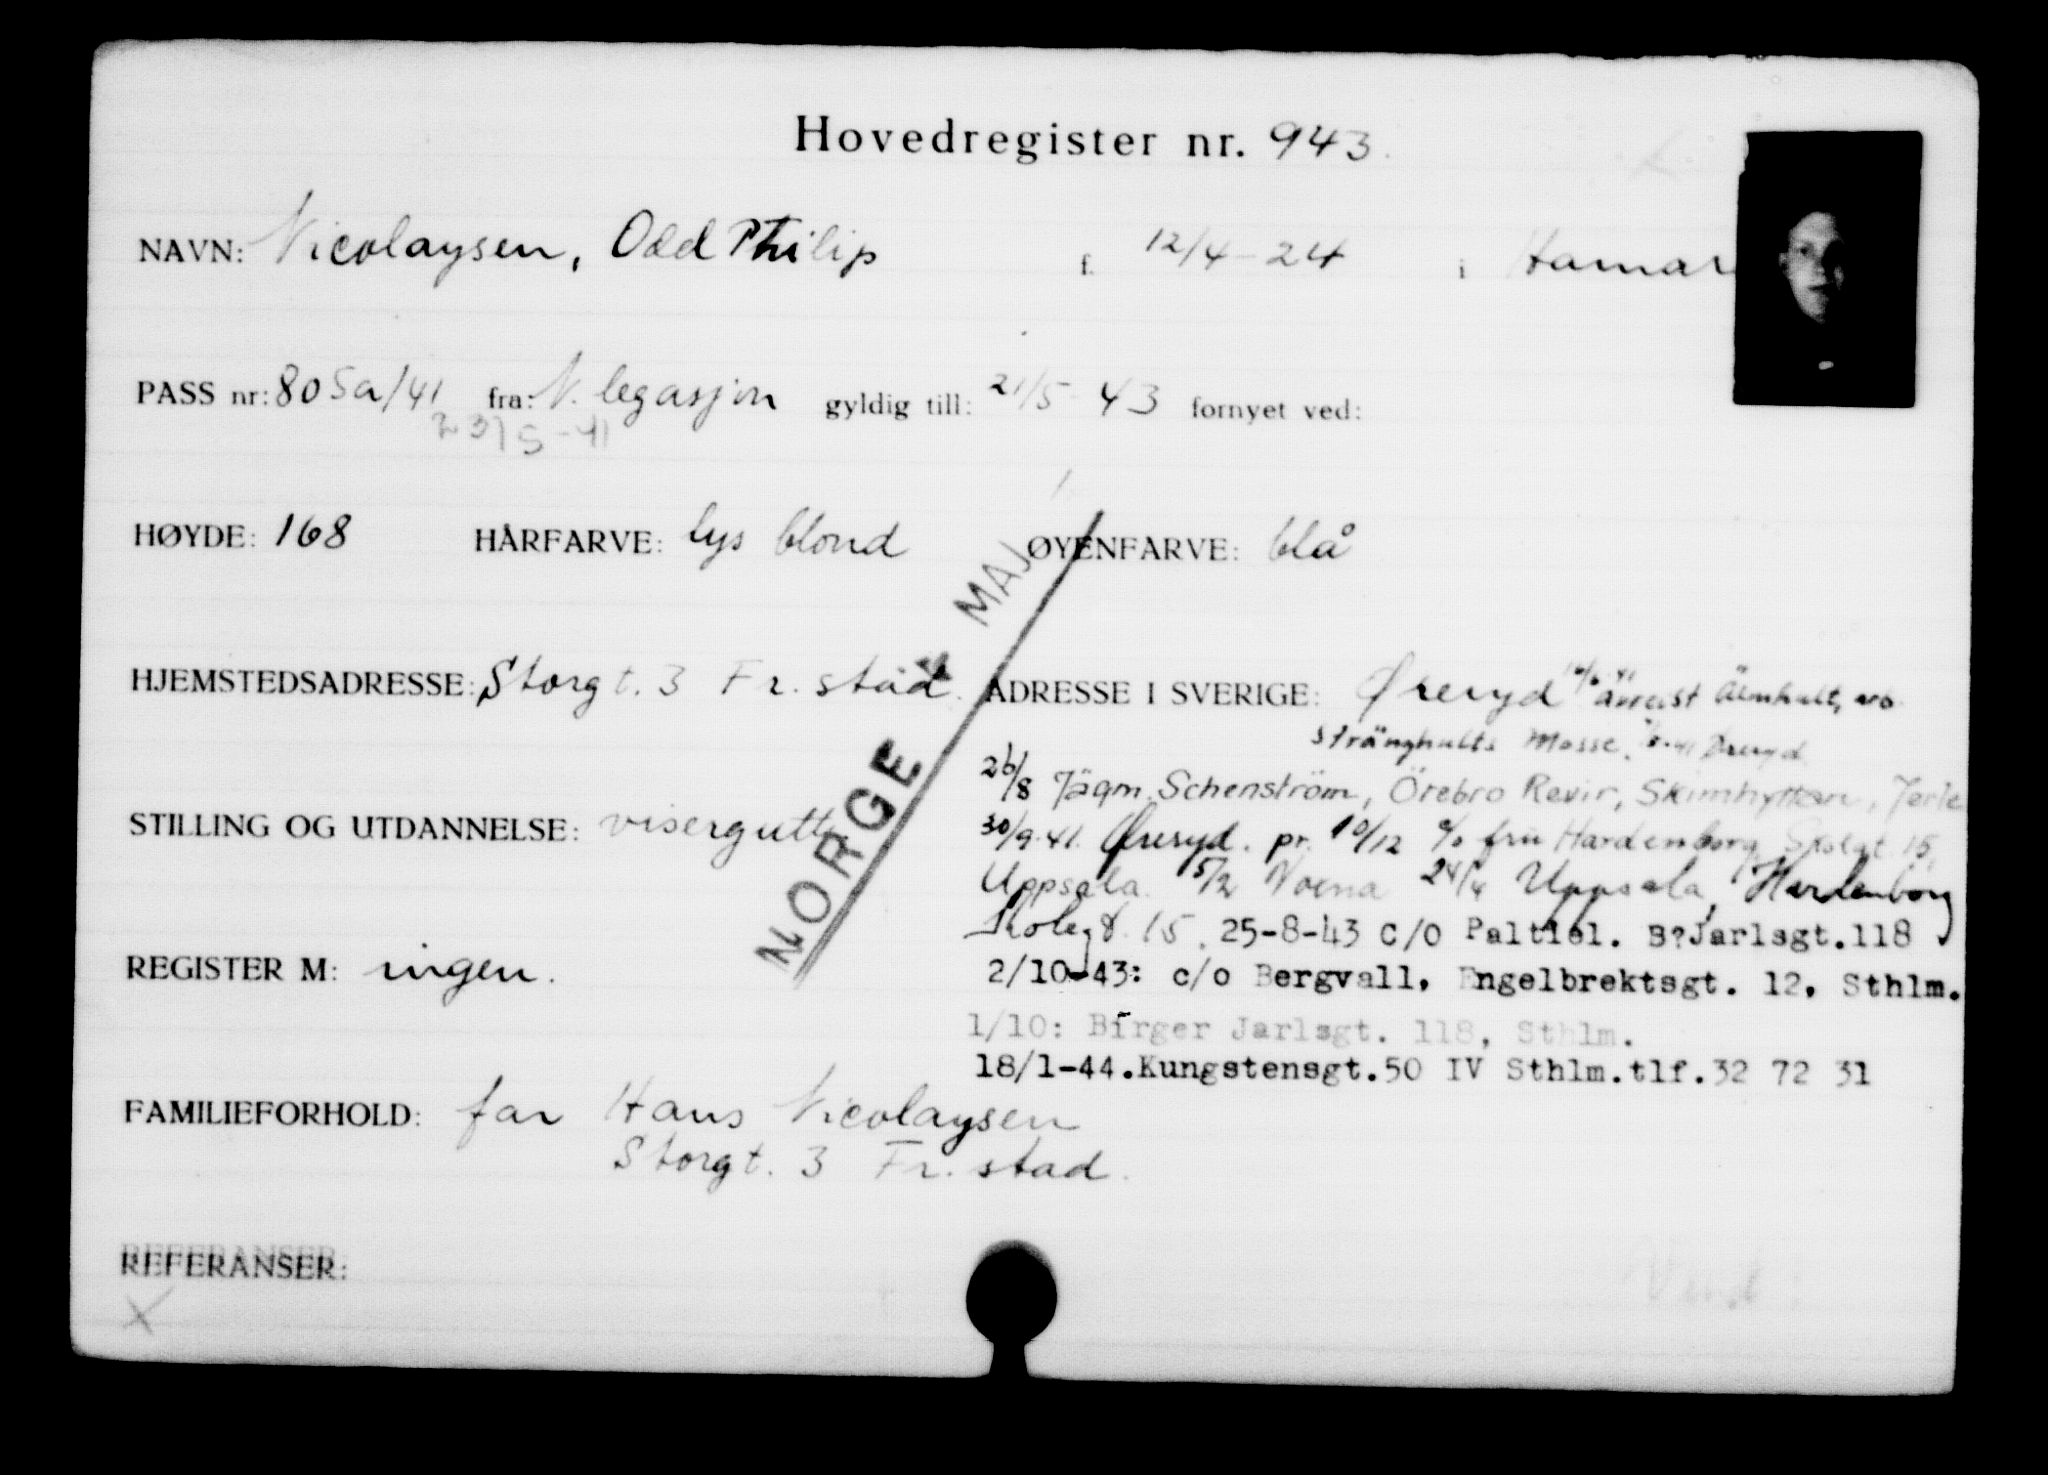 Hovedregister nr. 943.
NAVN: Nicolaysen, Odd Philip f. 12/4-24 i Hamar
PASS nr: 805a/41 fra: N. legasjon gyldig till: 21/5-43 fornyet ved:
23/5-41
HØYDE: 168 HÅRFARVE: lys blond ØYENFARVE: blå
MAI
HJEMSTEDSADRESSE: Storgt. 3 Fr.stad. ADRESSE I SVERIGE: Øreryd avreist Älmhult, arb.
Stränghults Mosse. Øreryd
26/8 Jägm. Schenström, Örebro Revir, Skimhyttan, Jerle
STILLING OG UTDANNELSE: visergutt
30/9.41. Øreryd. pr. 10/12 c/o fru Hardenborg Skolgt. 15,
NORGE
Uppsala. 5/2 Norna 24/4 Uppsala, Hardenborg
Skolegt. 15. 25-8-43 C/O Paltiel. B?Jarlsgt.118
REGISTER M: ingen.
2/10-43: c/o Bergvall, Engelbrektsgt. 12, Sthlm.
1/10: Birger Jarlsgt. 118, Sthlm.
18/1-44.Kungstensgt.50 IV Sthlm.tlf.32 72 31
FAMILIEFORHOLD: far Hans Nicolaysen
Storgt. 3 Fr.stad.
REFERANSER:
X